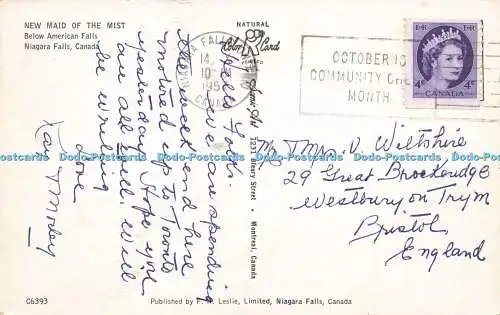 NEW MAID OF THE MIST
Below American Falls
Niagara Falls, Canada
NATURAL
Color Card
NIAGARA FALLS
14
10
195
OCTOBER IS
COMMUNITY CHEST
MONTH
E II R
E II R
4c
CANADA
4c
Hello Folks.
We are spending
the week end here
motored up to Toronto
yesterday. Hope you
are all well. Will
be writing
love
Kay & Morley
Mr & Mrs. V. Wiltshire
29 Great Brockeridge
Westbury on Trym
Bristol
England
12331 Berry Street - Montreal, Canada
Postcards Dodo-Postcards Dodo-Postcards Dodo-Postcards Dodo-Postcards Dodo-Postcards
C6393
Published by F. H. Leslie, Limited, Niagara Falls, Canada